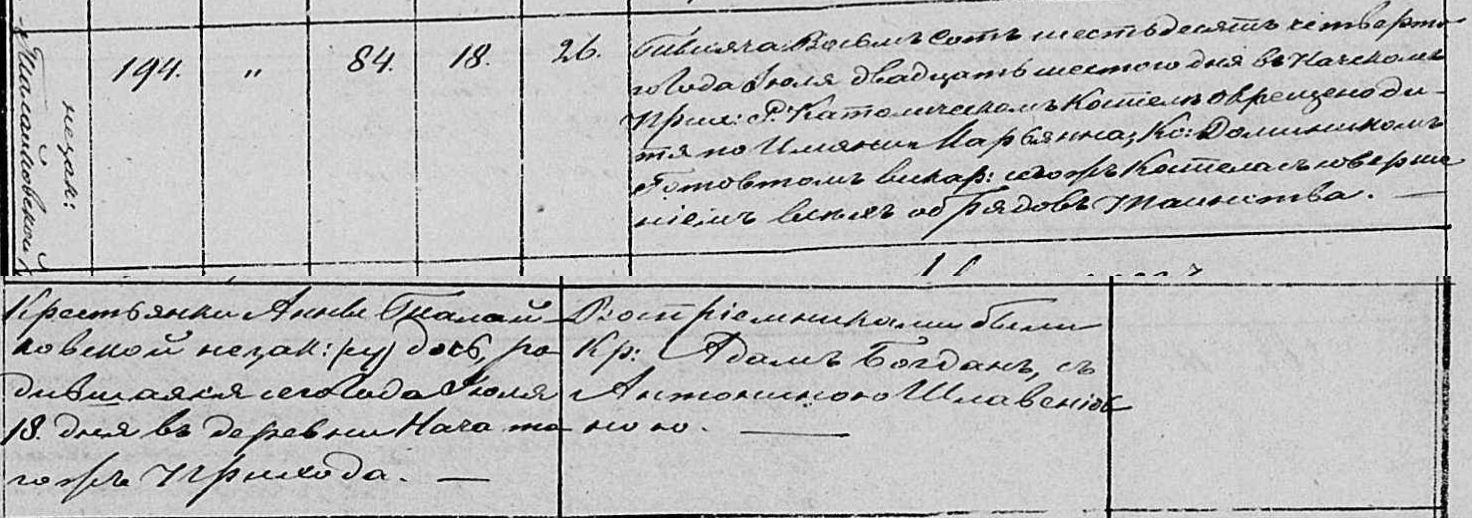 незак:
194. " 84. 18. 26.
Тысяча Восемь сотъ шестьдесятъ четверто
го Года Іюля двадцать шестого дня въ Начскомъ
Прих: Р. Католическомъ Костелѣ окрещено ди-
тя по Имяни Марьянна, Кс: Доминикомъ
викар: тогожъ Костела съ соверше
ніемъ всѣхъ обрядовъ таинства. —
Крестьянки Анны
ковской незак: дочь, ро
дившаяся сего Года Іюля
18. дня въ деревни Нача то
гожъ Прихода. —
Воспріемниками были
Кр: Адамъ Богданъ, съ
Антониною
ною. —